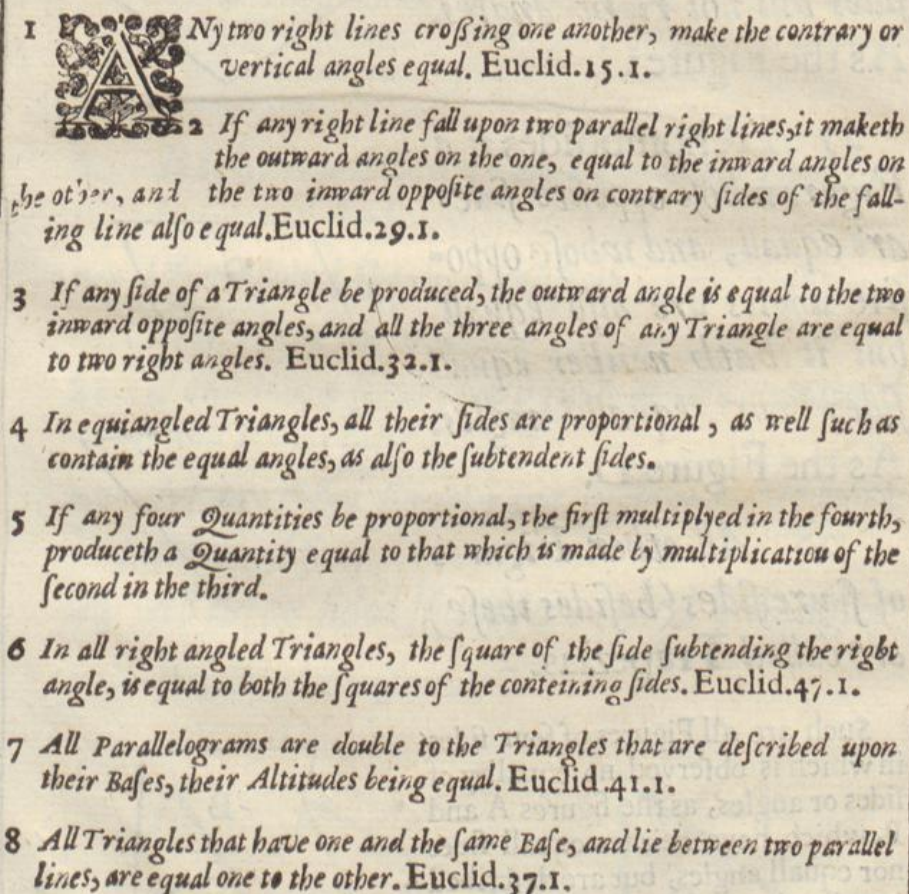 1 ANy two right lines croſſing one another, make the contrary or
vertical angles equal. Euclid.15.1.
2 If any right line fall upon two parallel right lines, it maketh
the outward angles on the one, equal to the inward angles on
the other, and the two inward oppoſite angles on contrary ſides of the fall-
ing line alſo equal. Euclid.29.1.
3 If any ſide of a Triangle be produced, the outward angle is equal to the two
inward oppoſite angles, and all the three angles of any Triangle are equal
to two right angles. Euclid.32.1.
4 In equiangled Triangles, all their ſides are proportional, as well ſuch as
contain the equal angles, as alſo the ſubtendent ſides.
5 If any four Quantities be proportional, the firſt multiplyed in the fourth,
produceth a Quantity equal to that which is made by multiplicatiou of the
ſecond in the third.
6 In all right angled Triangles, the ſquare of the ſide ſubtending the right
angle, is equal to both the ſquares of the conteining ſides. Euclid.47.1.
7 All Parallelograms are double to the Triangles that are deſcribed upon
their Baſes, their Altitudes being equal. Euclid.41.1.
8 All Triangles that have one and the ſame Baſe, and lie between two parallel
lines, are equal one to the other. Euclid.37.1.